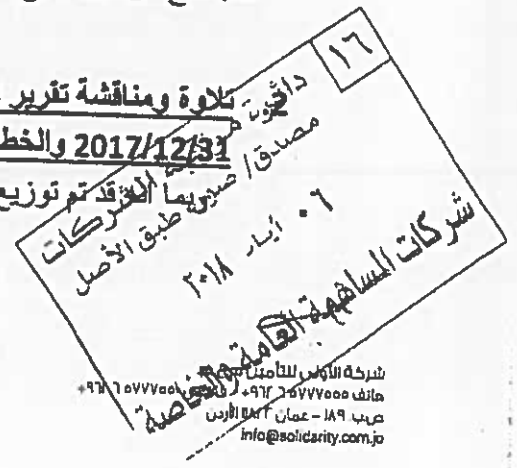 ١٦
تلاوة ومناقشة تقرير
2017/12/31 والخط
وبما أنه قد تم توزيع
دائرة مراقبة الشركات
مصدق / صورة طبق الأصل
٠٦ أيار ٢٠١٨
شركات المساهمة العامة والخاصة
شركة الأولى للتأمين
هاتف ٥٧٧٧٥٥٥ ٦ ٩٦٢+
ص.ب. ١٨٩ - عمان الأردن
info@solidarity.com.jo